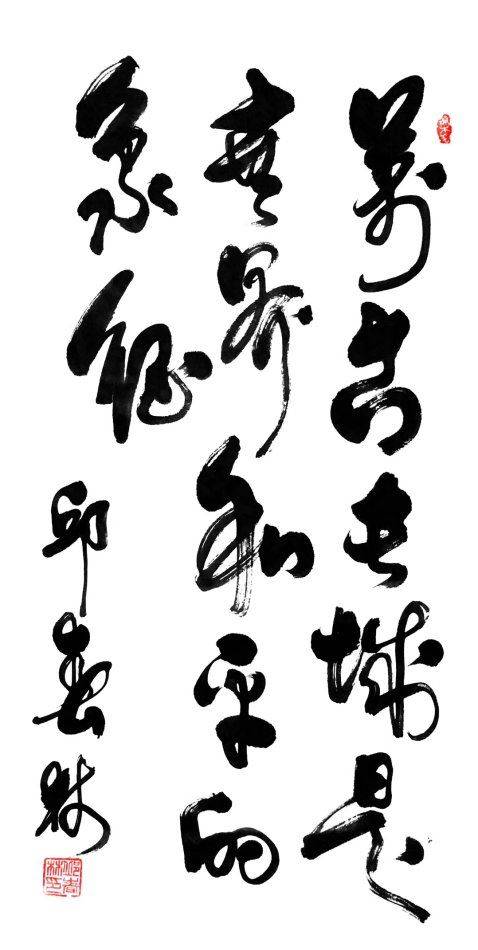 萬古長城是
世界和平的
象征
邱春林